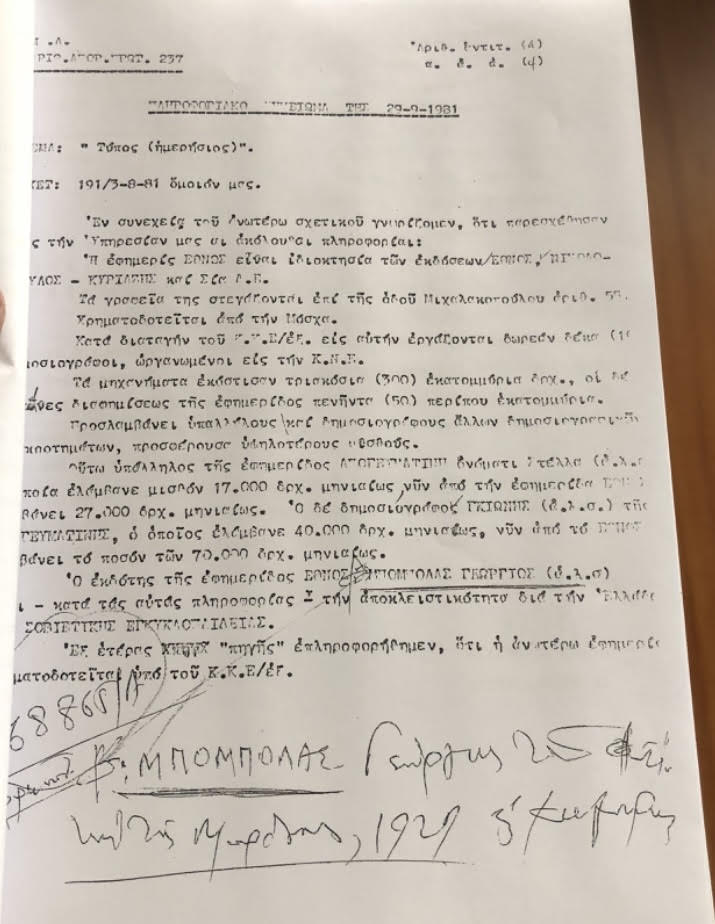 Ι.Α.
ΡΙΘ.ΑΠΟΡ.ΠΡΩΤ. 237
Ἀριθ. ἐντύπ. (4)
α. ἐ. ἀ. (4)
ΠΛΗΡΟΦΟΡΙΑΚΟ ΣΗΜΕΙΩΜΑ ΤΗΣ 29-9-1981
ΕΜΑ: " Τύπος (ἡμερήσιος)".
ΧΕΤ: 191/3-8-81 ὅμοιόν μας.
Ἐν συνεχείᾳ τοῦ ἀνωτέρω σχετικοῦ γνωρίζομεν, ὅτι παρεσχέθησαν
ς τήν Ὑπηρεσίαν μας αἱ ἀκόλουθοι πληροφορίαι:
Ἡ ἐφημερίς ΕΘΝΟΣ εἶναι ἰδιοκτησία τῶν ἐκδόσεων ΕΘΝΟΣ,
ΥΛΟΣ - ΚΥΡΙΑΖΗΣ καί Σία Α.Ε.
Τά γραφεῖα της στεγάζονται ἐπί τῆς ὁδοῦ Μιχαλακοπούλου ἀριθ.
Χρηματοδοτεῖται ἀπό τήν Μόσχα.
Κατά διαταγήν τοῦ Κ.Κ.Ε/ἐξ. εἰς αὐτήν ἐργάζονται δωρεάν δέκα (10
μοσιογράφοι, ὠργανωμένοι εἰς τήν Κ.Ν.Ε.
Τά μηχανήματα ἐκόστισαν τριακόσια (300) ἑκατομμύρια δρχ., οἱ δέ
διαφημίσεως τῆς ἐφημερίδος πενῆντα (50) περίπου ἑκατομμύρια.
Προσλαμβάνει ὑπαλλήλους καί δημοσιογράφους ἄλλων δημοσιογραφικῶν
κροτημάτων, προσφέρουσα ὑψηλοτέρους μισθούς.
Οὕτω ὑπάλληλος τῆς ἐφημερίδος ΑΠΟΓΕΥΜΑΤΙΝΗ ὀνόματι Στέλλα (ἀ.λ.σ
ποία ἐλάμβανε μισθόν 17.000 δρχ. μηνιαίως, νῦν ἀπό τήν ἐφημερίδα ΕΘΝΟΣ
βάνει 27.000 δρχ. μηνιαίως. Ὁ δέ δημοσιογράφος ΓΚΙΩΝΗΣ (ἀ.λ.σ.) τῆς
ΓΕΥΜΑΤΙΝΗΣ, ὁ ὁποῖος ἐλάμβανε 40.000 δρχ. μηνιαίως, νῦν ἀπό τό ΕΘΝΟΣ
βάνει τό ποσόν τῶν 70.000 δρχ. μηνιαίως.
Ὁ ἐκδότης τῆς ἐφημερίδος ΕΘΝΟΣ ΜΠΟΜΠΟΛΑΣ ΓΕΩΡΓΙΟΣ (ἀ.λ.σ)
ι - κατά τάς αὐτάς πληροφορίας - τήν ἀποκλειστικότητα διά τήν Ἑλλάδα
ΣΟΒΙΕΤΙΚΗΣ ΕΓΚΥΚΛΟΠΑΙΔΕΙΑΣ.
Ἐξ ἑτέρας "πηγῆς" ἐπληροφορήθημεν, ὅτι ἡ ἀνωτέρω ἐφημερίς
ματοδοτεῖται ὑπό τοῦ Κ.Κ.Ε/ἐξ.
68868/Α
ΜΠΟΜΠΟΛΑΣ Γεώργιος τοῦ
καί τῆς 1929